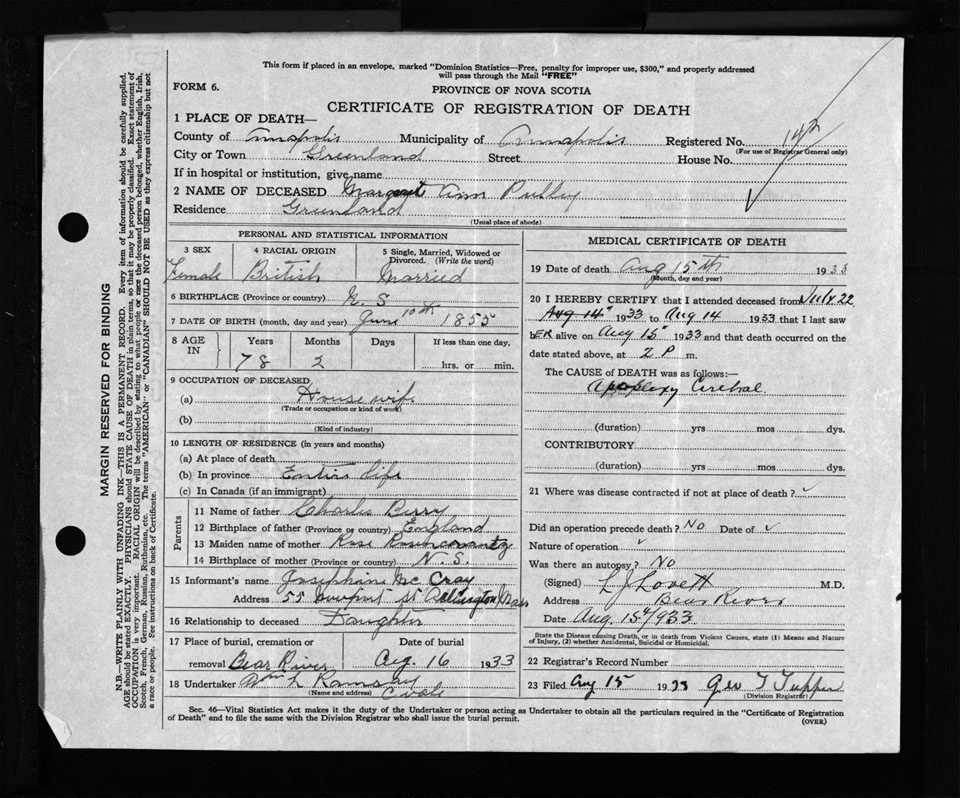 This form if placed in an envelope, marked "Dominion Statistics—Free, penalty for improper use, $300," and properly addressed
will pass through the Mail "FREE"
FORM 6.
PROVINCE OF NOVA SCOTIA
CERTIFICATE OF REGISTRATION OF DEATH
1 PLACE OF DEATH—
County of Annapolis Municipality of Annapolis Registered No. 142
(For use of Registrar General only)
City or Town Greenland Street House No.
If in hospital or institution, give name
2 NAME OF DECEASED Margaret Ann Pulley
Residence Greenland
(Usual place of abode)
PERSONAL AND STATISTICAL INFORMATION
3 SEX 4 RACIAL ORIGIN 5 Single, Married, Widowed or
Divorced. (Write the word)
Female British Married
6 BIRTHPLACE (Province or country) N. S
7 DATE OF BIRTH (month, day and year) June 10th 1855
8 AGE IN Years Months Days If less than one day,
78 2 hrs. or min.
9 OCCUPATION OF DECEASED
(a) House wife
(Trade or occupation or kind of work)
(b)
(Kind of industry)
10 LENGTH OF RESIDENCE (in years and months)
(a) At place of death
(b) In province Entire life
(c) In Canada (if an immigrant)
Parents
11 Name of father Charles Berry
12 Birthplace of father (Province or country) England
13 Maiden name of mother Rose
14 Birthplace of mother (Province or country) N. S.
15 Informant's name Josephine Mc Cray
Address 55 St Arlington Mass
16 Relationship to deceased Daughter
17 Place of burial, cremation or Date of burial
removal Bear River Aug. 16 1933
18 Undertaker Wm L Ramsay
(Name and address)
MEDICAL CERTIFICATE OF DEATH
19 Date of death Aug 15th 1933
(Month, day and year)
20 I HEREBY CERTIFY that I attended deceased from July 22
Aug 14" 1933 to Aug 14 1933 that I last saw
hER alive on Aug 15" 1933 and that death occurred on the
date stated above, at 2 P m.
The CAUSE OF DEATH was as follows:
Apoplexy Cerebral
(duration) yrs mos dys.
CONTRIBUTORY
(duration) yrs mos dys.
21 Where was disease contracted if not at place of death? ✓
Did an operation precede death? No Date of ✓
Nature of operation ✓
Was there an autopsy? No
(Signed) L J Lovett M.D.
Address Bear River
Date Aug. 15th 1933
State the Disease causing Death, or in death from Violent Causes, state (1) Means and Nature
of Injury, (2) whether Accidental, Suicidal or Homicidal.
22 Registrar's Record Number
23 Filed Aug 15 1933 Geo T Tupper
(Division Registrar)
Sec. 46—Vital Statistics Act makes it the duty of the Undertaker or person acting as Undertaker to obtain all the particulars required in the "Certificate of Registration
of Death" and to file the same with the Division Registrar who shall issue the burial permit.
(OVER)
MARGIN RESERVED FOR BINDING
N.B.—WRITE PLAINLY WITH UNFADING INK—THIS IS A PERMANENT RECORD. Every item of information should be carefully supplied.
AGE should be stated EXACTLY. PHYSICIANS should STATE CAUSE OF DEATH in plain terms, so that it may be properly classified. Exact statement of
OCCUPATION is very important. RACIAL ORIGIN will be described by stating to what people or race the deceased person belonged, whether English, Irish,
Scotch, French, German, Russian, Ruthenian, etc. The terms "AMERICAN" or "CANADIAN" SHOULD NOT BE USED as they express citizenship but not
a race or people. See instructions on back of Certificate.